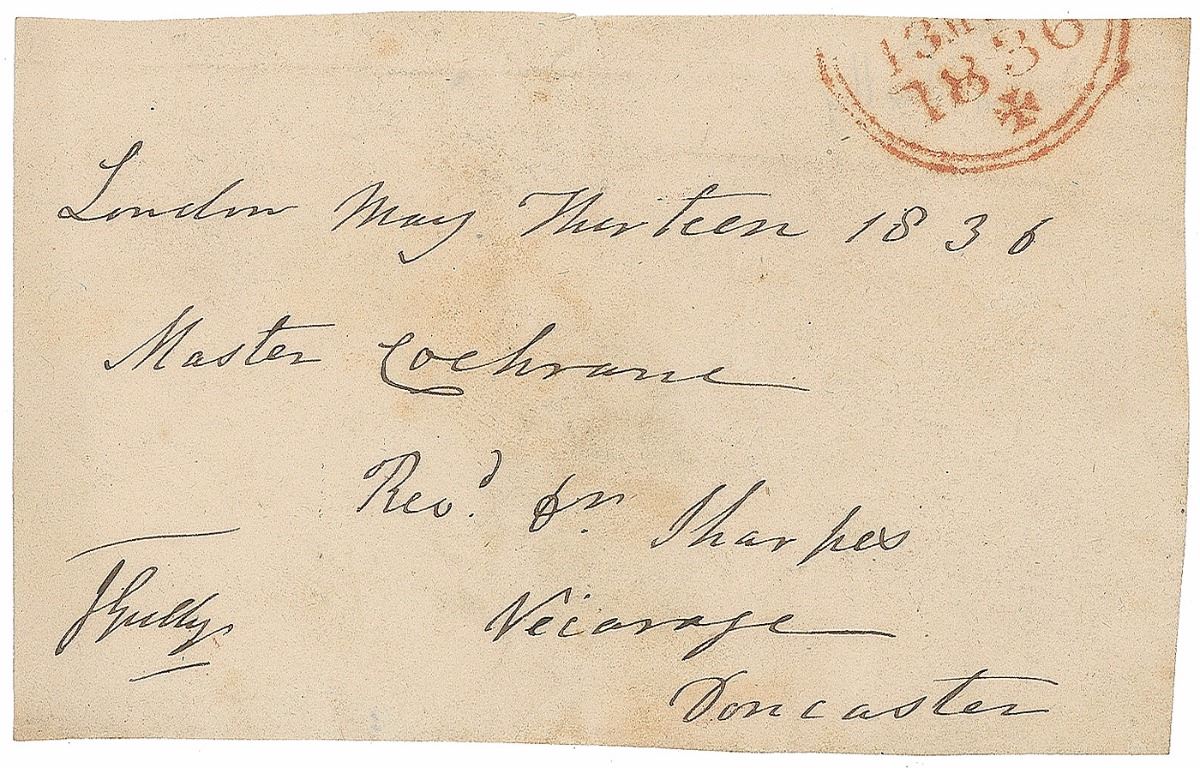 13M
1836
London May Thirteen 1836
Master Cochrane
Revd. Dr. Sharpes
JGully
Veiarage
Doncaster